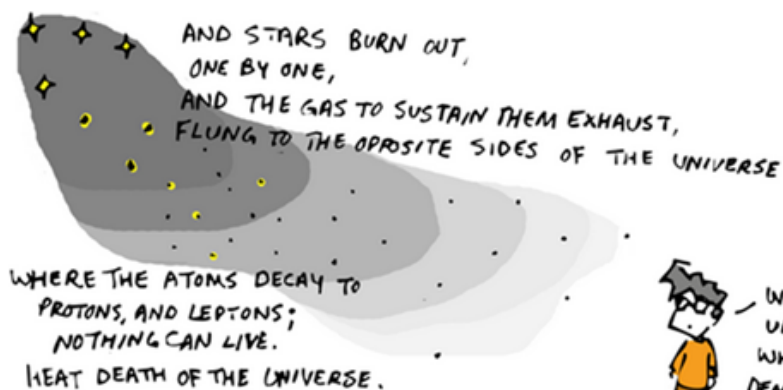 AND STARS BURN OUT,
ONE BY ONE,
AND THE GAS TO SUSTAIN THEM EXHAUST,
FLUNG TO THE OPPOSITE SIDES OF THE UNIVERSE
WHERE THE ATOMS DECAY TO
PROTONS, AND LEPTONS;
NOTHING CAN LIVE.
HEAT DEATH OF THE UNIVERSE.